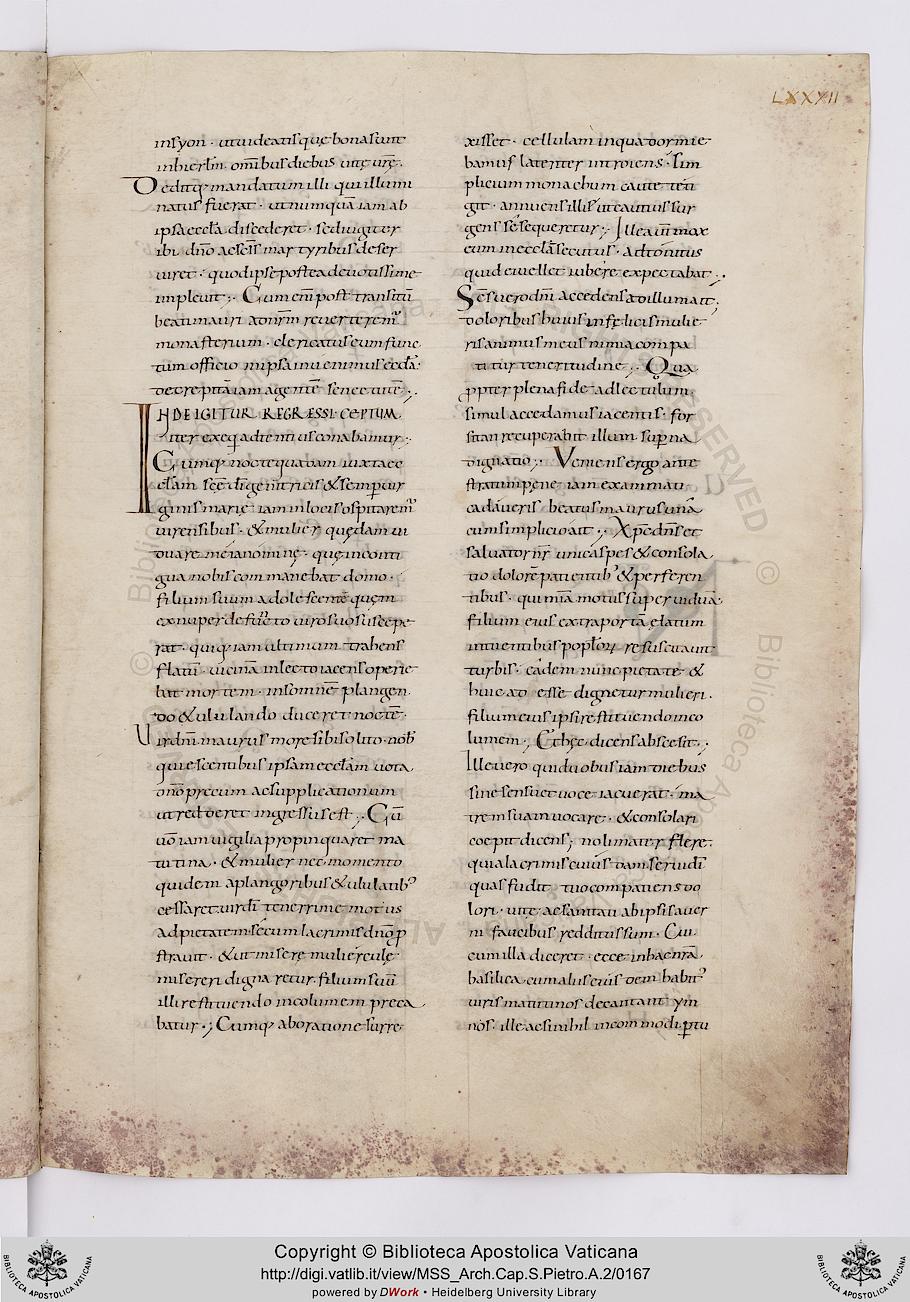 LXXXII
insyon · utuideatis que bona sunt
inhierłm omibus diebus uitę urę.
Deditq; mandatum illi qui illumi
natus fuerat · ut numquā iam ab
ipsa eccła discederet · sed iugiter
ibi dño ac sēis martyribus deser
uiret · quod ipse postea deuotissime
impleuit ·; Cum eni post transitū
beati mauri ad nrm reuerteremr
monasterium · clericatus eum func
tum officio in ipsa inuenimus eccła
decrepitā iam agentē senectutē ·,
INDE IGITUR REGRESSI CEPTUM
iter exeq̨ adtentius conabamur ·;
Cumq; nocte quadam iuxta ec
clam scē di genitricis & semp uir
ginis marię iam in locis ospitaremr
uirensibus · & mulier quędam ui
duare me ia nomine · quę inconti
gua nobis commanebat domo ·
filium suum adolescentē quem
ex nuper defucto uiro suo suscepe
rat · quiq; iam ultimum trahens
flatū · uicinā in lecto iacens operie
bat mortem · insomnē plangen
do & ululando duceret noctē ·
Uir dni maurus more sibi solito · nob
quiescentibus ipsam ecclam uota
dño precum ac supplicationum
ut redderet ingressus est ·; Cū
uō iam uigilia propinquaret ma
tutina · & mulier nec momento
quidem a plangoribus & ululatib;
cessaret uir di tenerrime motus
ad pietatem · secum lacrimis dño p
strauit · & ut miserę mulierculę
misereri dignaretur · filium suū
illi restituendo incolumem preca
batur ·; Cumq; ab oratione surre
xisset · cellulam in qua dormie
bamus latenter introiens · sim
plicium monachum caute teti
git · annuens illi ut cautius sur
gens sē sequeretur ·; Ille aut mox
eum in eccła secutus · adtonitus
quid ei uellet iubere expectabat ·,
Sēs uero dni accedens ad illum ait;
doloribus huius infelicis mulie
ris animus meus nimia compa
titur teneritudine ·; Qua
ppter plena fide ad lectulum
simul accedamus iacentis · for
sitan recuperabit illum superna
dignatio ·; Veniens ergo ante
stratum pene iam exanimati
cadaueris beatus maurus una
cum simplicio ait ·, Xpe dns et
saluator nr unica spes & consola
tio dolorē patientib; & perferen
tibus · qui mia motus super uiduā
filium eius extra portā elatum
intuentibus poploꝝ resuscitauit
turbis · eadem nunc pietate &
huic adesse digneris mulieri ·
filium eius ipsi restituendo inco
lumem ·; Et hęc dicens abscessit ·,
Ille uero qui duobus iam diebus
sine sensu et uoce iacuerat · ma
trem suam uocare · & consolari
coepit dicens; noli mater flere ·
quia lacrimis eius dam seruidi
quas fudit tuo compatiens do
lori · uitę ac sanitati ab ipsis auer
ni faucibus redditus sum · Cui
cum illa diceret · ecce in hac nrā
basilica cum aliis eius dem habit
uiris matutinos decantant ym
nōs · ille ac si nihil incommodi ptu
Copyright © Biblioteca Apostolica Vaticana
http://digi.vatlib.it/view/MSS_Arch.Cap.S.Pietro.A.2/0167
powered by DWork • Heidelberg University Library
BIBLIOTECA APOSTOLICA VATICANA
BIBLIOTECA APOSTOLICA VATICANA